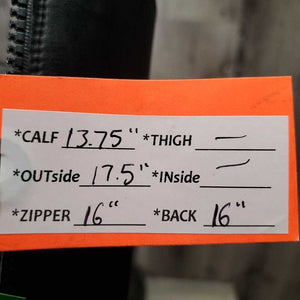 *CALF 13.75" *THIGH —
*OUTside 17.5" *INside —
*ZIPPER 16" *BACK 16"